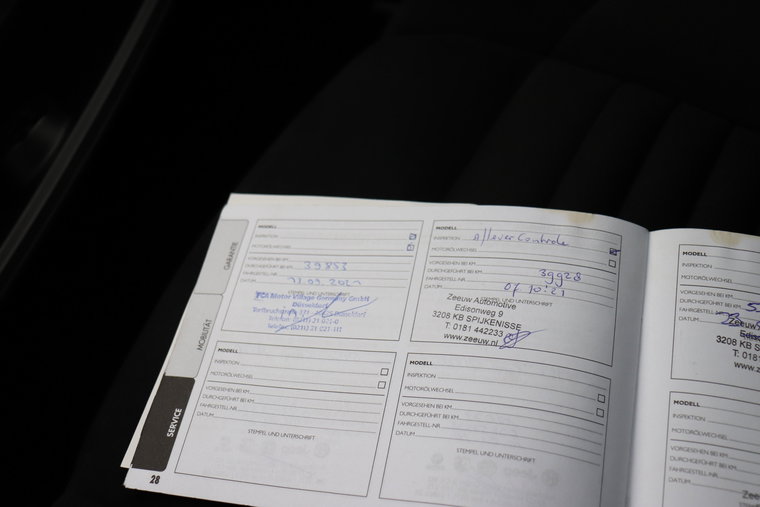 GARANTIE
MOBILITÄT
SERVICE
MODELL
INSPEKTION
MOTORÖLWECHSEL
VORGESEHEN BEI KM
DURCHGEFÜHRT BEI KM 39853
FAHRGESTELL-NR.
DATUM 2021
STEMPEL UND UNTERSCHRIFT
FCA Motor Village Germany GmbH
Düsseldorf
MODELL
INSPEKTION
MOTORÖLWECHSEL
VORGESEHEN BEI KM
DURCHGEFÜHRT BEI KM 39928
FAHRGESTELL-NR.
DATUM
STEMPEL UND UNTERSCHRIFT
Zeeuw Automotive
Edisonweg 9
3208 KB SPIJKENISSE
T: 0181 442233
www.zeeuw.nl
MODELL
INSPEKTION
MOTORÖLWECHSEL
VORGESEHEN BEI KM
DURCHGEFÜHRT BEI KM
FAHRGESTELL-NR.
DATUM
STEMPEL UND UNTERSCHRIFT
MODELL
INSPEKTION
MOTORÖLWECHSEL
VORGESEHEN BEI KM
DURCHGEFÜHRT BEI KM
FAHRGESTELL-NR.
DATUM
STEMPEL UND UNTERSCHRIFT
28
MODELL
INSPEKTION
MOTORÖLWECHSEL
VORGESEHEN BEI KM
DURCHGEFÜHRT BEI KM
FAHRGESTELL-NR.
DATUM
Zeeuw
3208 KB S
T: 018
www.z
MODELL
INSPEKTION
MOTORÖLWECHSEL
VORGESEHEN BEI KM
DURCHGEFÜHRT BEI KM
FAHRGESTELL-NR.
DATUM
Zeeu